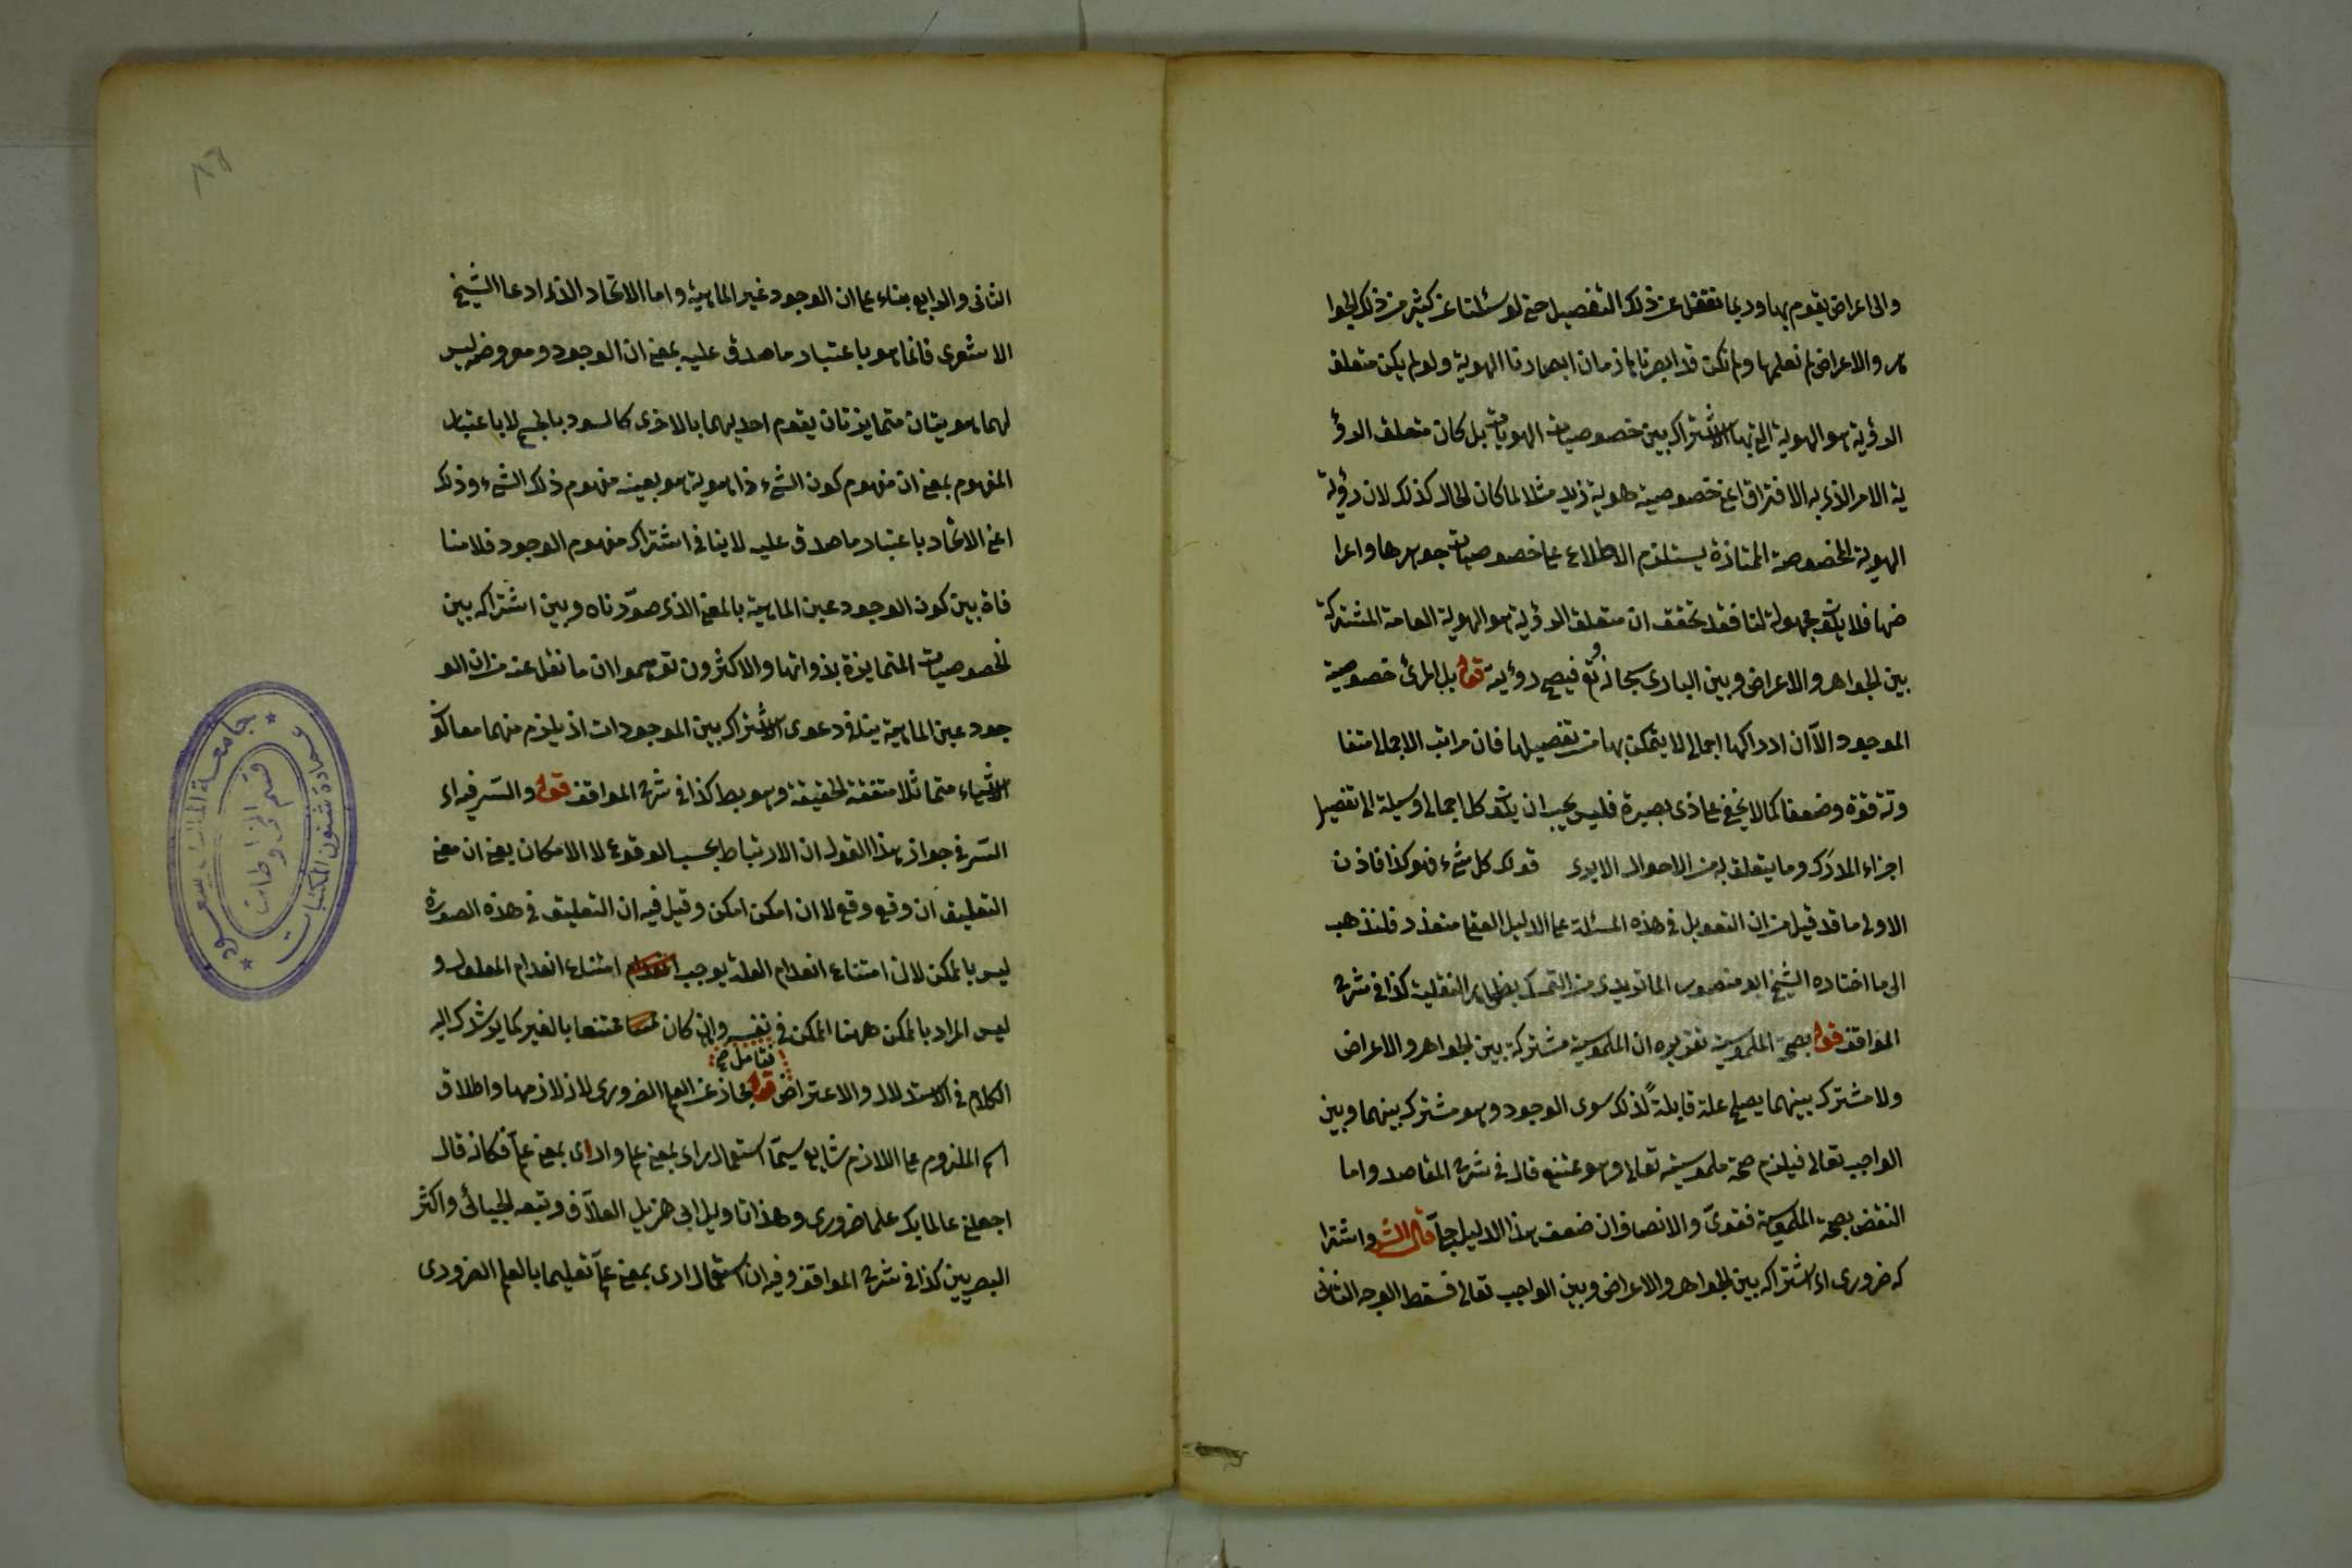 والى اعراض يقوم بها وربما نغفل عن ذلك التفصيل حتى لو سئلنا عن كثير من ذلك الجوا
هر والاعراض لم نعلمها ولم نكن قد ابصرناها زمان ابصارنا الهوية ولو لم يكن متعلق
الرؤية هو الهوية التى بها الاشتراك بين خصوصيات الهويات بل كان متعلق الرؤ
ية الامر الذى به الافتراق اعنى خصوصية هوية زيد مثلا لما كان الحال كذلك لان رؤية
الهوية المخصوصة الممتازة يستلزم الاطلاع على خصوصيات جوهرها واعرا
ضها فلا يكون مجهولة لنا فقد تحقق ان متعلق الرؤية هو الهوية العامة المشتركة
بين الجواهر والاعراض وبين البارى سبحانه وتع فيصح رؤيته قوله بل المرئى خصوصية
الموجود الا ان ادراكها اجمالى لا يتمكن بها من تفصيلها فان مراتب الاجمال متفا
وتة قوة وضعفا كما لا يخفى على ذى بصيرة فليس يجب ان يكون كل اجمالى وسيلة الى تفصيل
اجزاء المدرك وما يتعلق به من الاحوال الا يرى قولك كل شىء فهو كذا فاذن
الاولى ما قد قيل من ان التعويل فى هذه المسئلة على الدليل العقلى متعذر فلنذهب
الى ما اختاره الشيخ ابو منصور الماتريدى من التمسك بظواهر النقلية كذا فى شرح
المواقف قوله بصحة الملموسية تقريره ان الملموسية مشتركة بين الجواهر والاعراض
ولا مشترك بينهما يصلح علة قابلة لذلك سوى الوجود وهو مشترك بينهما وبين
الواجب تعالى فيلزم صحة ملموسيته تعالى وهو ممتنع قال فى شرح المقاصد واما
النقض بصحة الملموسية فقوى والانصاف ان ضعف هذا الدليل جلى قال الش واشترا
كه ضرورى اى اشتراكه بين الجواهر والاعراض وبين الواجب تعالى فسقط الوجه الثانى
الثانى والرابع بناء على ان الوجود غير الماهية واما الاتحاد الذى ادعاه الشيخ
الاشعرى فانما هو باعتبار ما صدق عليه بمعنى ان الوجود ومعروضه ليس
لهما هويتان متمايزتان يقوم احديهما بالاخرى كالسود بالجسم لا باعتبار
المفهوم بمعنى ان مفهوم كون الشىء ذا هوية هو بعينه مفهوم ذلك الشىء وذلك
اعنى الاتحاد باعتبار ما صدق عليه لا ينافى اشتراك مفهوم الوجود فلا منا
فاة بين كون الوجود عين الماهية بالمعنى الذى صورناه وبين اشتراكه بين
الخصوصيات المتمايزة بذواتها والاكثرون توهموا ان ما نقل عنه من ان الو
جود عين الماهية ينافى دعوى الاشتراك بين الموجودات اذ يلزم منهما معا كون
الاشياء متماثلا متفقة الحقيقة وهو بط كذا فى شرح المواقف قوله والسر فيه اى
السر فى جواز هذا القول ان الارتباط بحسب الوقوع لا الامكان يعنى ان معنى
التعليق ان وقع وقع لا ان امكن امكن وقيل فيه ان التعليق فى هذه الصورة
ليس بالممكن لان امتناع انعدام العلة يوجب امتناع انعدام المعلول و
ليس المراد بالممكن ههنا الممكن فى نفسه وان كان ممتنعا بالغير كما يرشدك اليه
فتامل صح
الكلام فى الاستدلال والاعتراض قوله مجاز عن العلم الضرورى لانه لازمها واطلاق
اسم الملزوم على اللازم شايع سيما استعمال راى بمعنى علم وارى بمعنى علم فكانه قال
اجعلنى عالما بك علما ضرورى وهذا تاويل ابى هزيل العلاف وتبعه الجبائى واكثر
البصريين كذا فى شرح المواقف وفيه ان استعمال ارى بمعنى علم تعليما بالعلم الضرورى
جامعة الملك سعود
عمادة شئون المكتبات
قسم المخطوطات